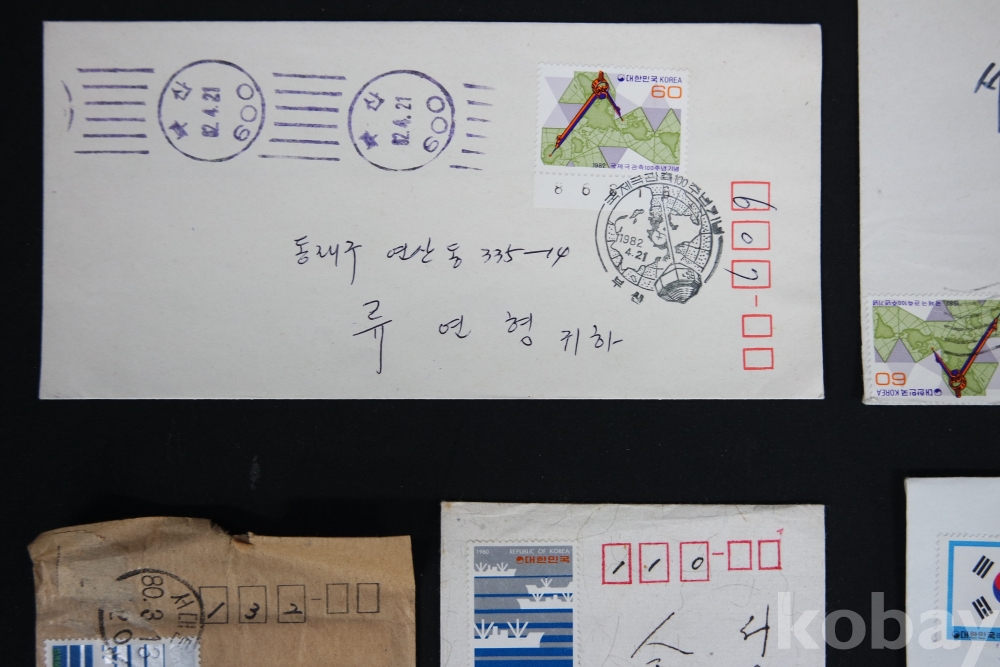 부산
82.4.21
600
부산
82.4.21
600
대한민국 KOREA
60
1982 국제극관측100주년기념
8 6 8 1 8
국제극관측100주년기념
1982
4.21
부산
607-
동래구 연산동 335-14
류 연 형 귀하
60
대한민국 KOREA
1982 국제극관측100주년기념
80.3.1
132-
1980 REPUBLIC OF KOREA
대한민국
110-
대한민국
kobay